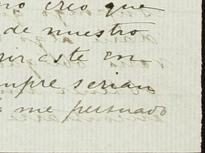 no creo que
de nuestro
rir este en
mpre serian
me persuado